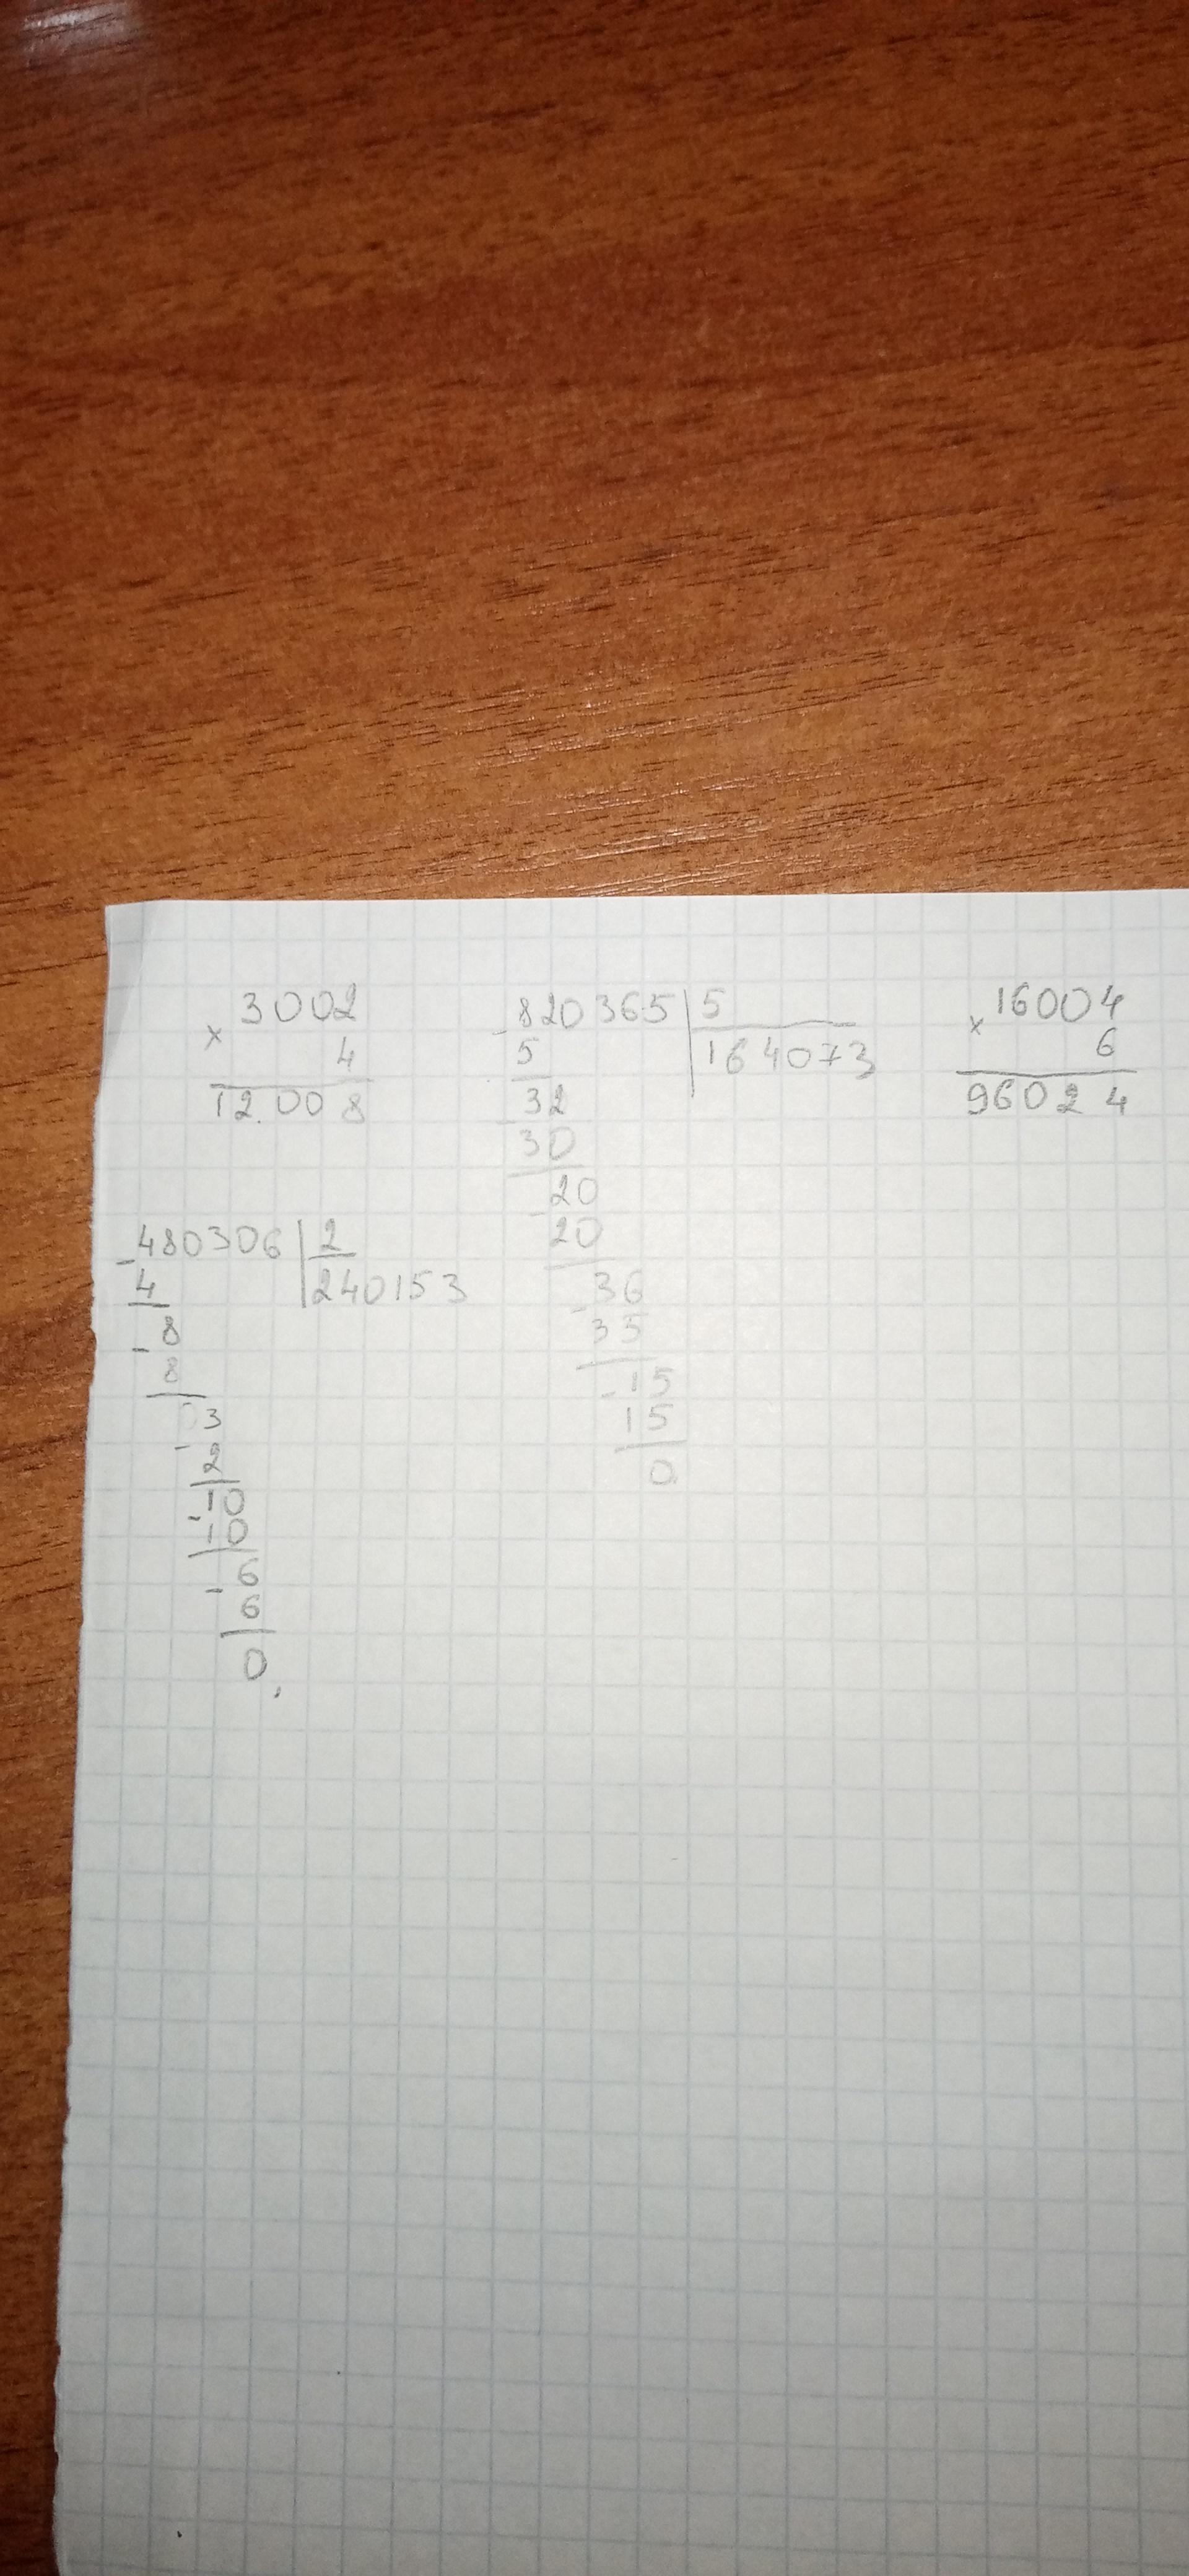 3002
× 4
12008
-820365 | 5
5
164073
32
30
20
-20
36
-35
-15
15
0
16004
× 6
96024
-480306 | 2
4
240153
-8
8
-3
2
-10
10
-6
6
0